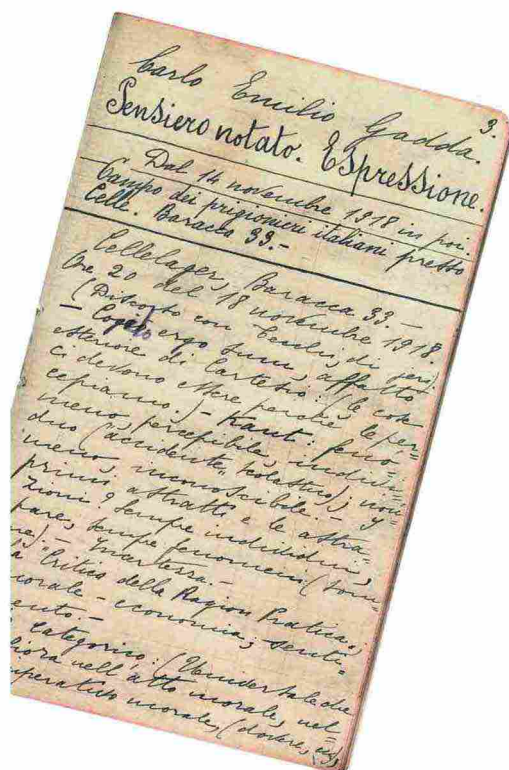 3.
Carlo Emilio Gadda.
Pensiero notato. Espressione.
Dal 14 novembre 1918 in poi.
Campo dei prigionieri italiani presso
Celle. Baracca 33.-
Cellelager, Baracca 33.-
Ore 20 del 18 novembre 1918.
(Discorso con di jeri)
- Cogito ergo sum, affatto
esteriore di Cartesio: (le cose
ci devono essere perchè le per=
cepiamo.) - Kant: feno=
meno percepibile, indivi=
duo ("accidente" scolastico); nou=
meno, inconoscibile. - I
primi astratti e le astra
zioni? Sempre individui,
sempre fenomeni (
- Inghilterra. -
"Critica della Ragion Pratica":
morale - economia; senti=
mento. -
categorico: (Universale che
nell'atto morale, nel=
imperativo morale, (dovere,